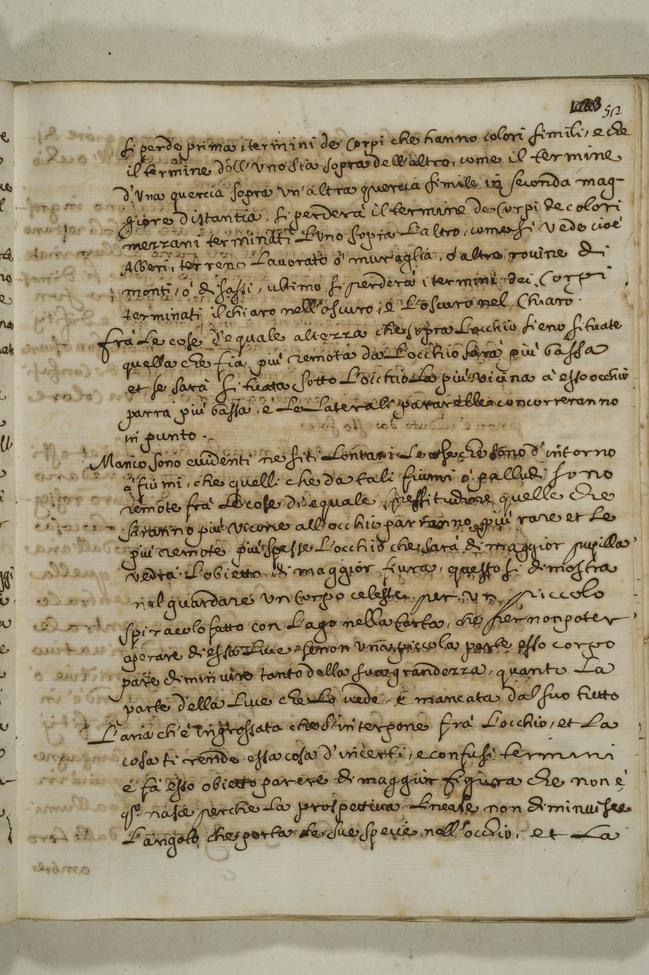 52
si perde prima i termini de Corpi che hanno colori simili, e che
il termine dell'uno sia sopra dell'altro, come il termine
d'una quercia sopra un'altra quercia simile in seconda mag-
giore distantia. si perderà il termine de Corpi de colori
mezzani terminati l'uno sopra l'altro, come si vede cioè
Alberi, terreno Lavorato ò muraglia, ò altre rovine di
monti, ò di sassi, ultimo si perderà i termini dei Corpi
terminati il chiaro nell'oscuro, e L'oscuro nel Chiaro.
frà Le cose d'equale altezza che sopra L'occhio sieno situate
quella che fia più remota da L'occhio sarà più bassa
et se sarà situata sotto L'occhio La più vicina à esso occhio
parrà più bassa, e Le Laterali pararelle concorreranno
in punto.
Manco sono evidenti ne siti Lontani Le cose che sono d'intorno
à fiumi, che quelli che da tali fiumi ò palludi sono
remote frà Le cose di equale spessitudine quelle che
saranno più vicine all'occhio parranno più rare et Le
più remote più spesse L'occhio che sarà di maggior pupilla
vedrà L'obietto di maggior fiura, questo si dimostra
nel guardare un Corpo celeste per un piccolo
spiracolo fatto con L'ago nella Carta, che per non poter
operare di essa Luce se non una piccola parte esso corpo
pare diminuire tanto della sua grandezza, quanto La
parte della Luce che Lo vede, è mancata dal suo tutto
L'aria ch'è ingrossata che s'interpone frà L'occhio, et La
cosa ti rende essa cosa d'incerti, e confusi termini
e fà esso obietto parere di maggiur figura che non è
qsº nasce perche La prospectiva Lineale non diminuisce
L'angolo che porta Le sue spetie nell'occhio, et La